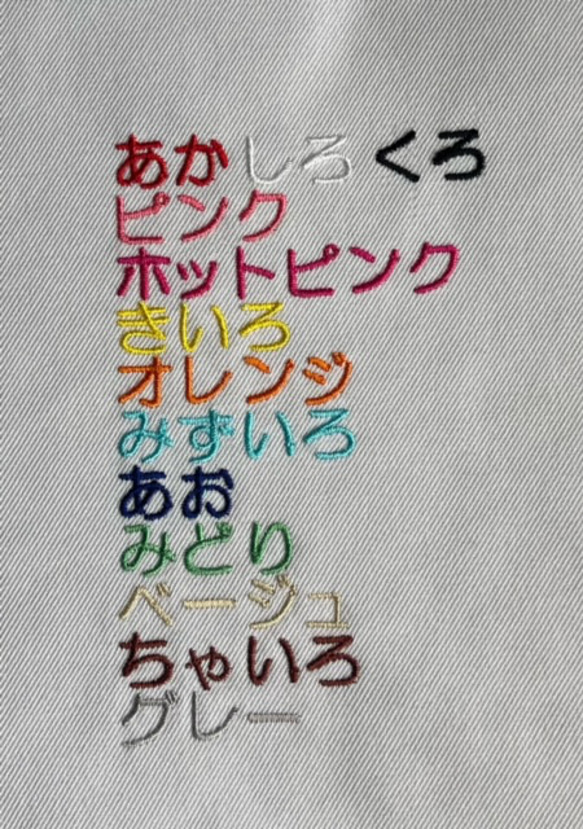 あか しろ くろ
ピンク
ホットピンク
きいろ
オレンジ
みずいろ
あお
みどり
ベージュ
ちゃいろ
グレー